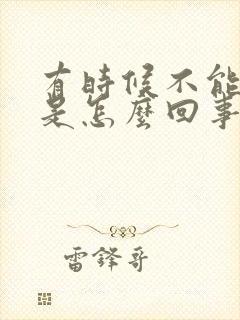 有時候不能
是怎麼回事
雷鋒哥